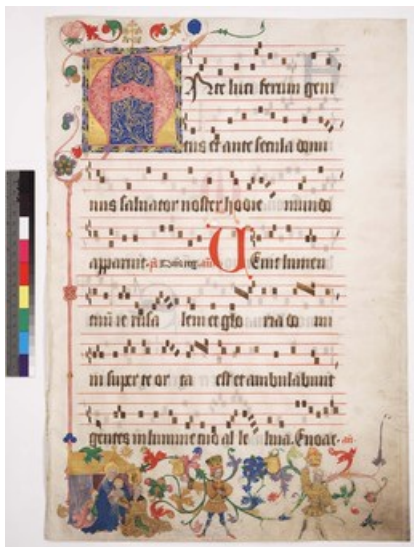 A Nte luci ferum geni
tus et ante secula domi
nus saluator noster hodie mundo
apparuit U Enit lumen
tuum ie rusa lem et glo ria do mi
ni super te or ta est et ambulabunt
gentes in lumine tuo al le luia. Euouae.